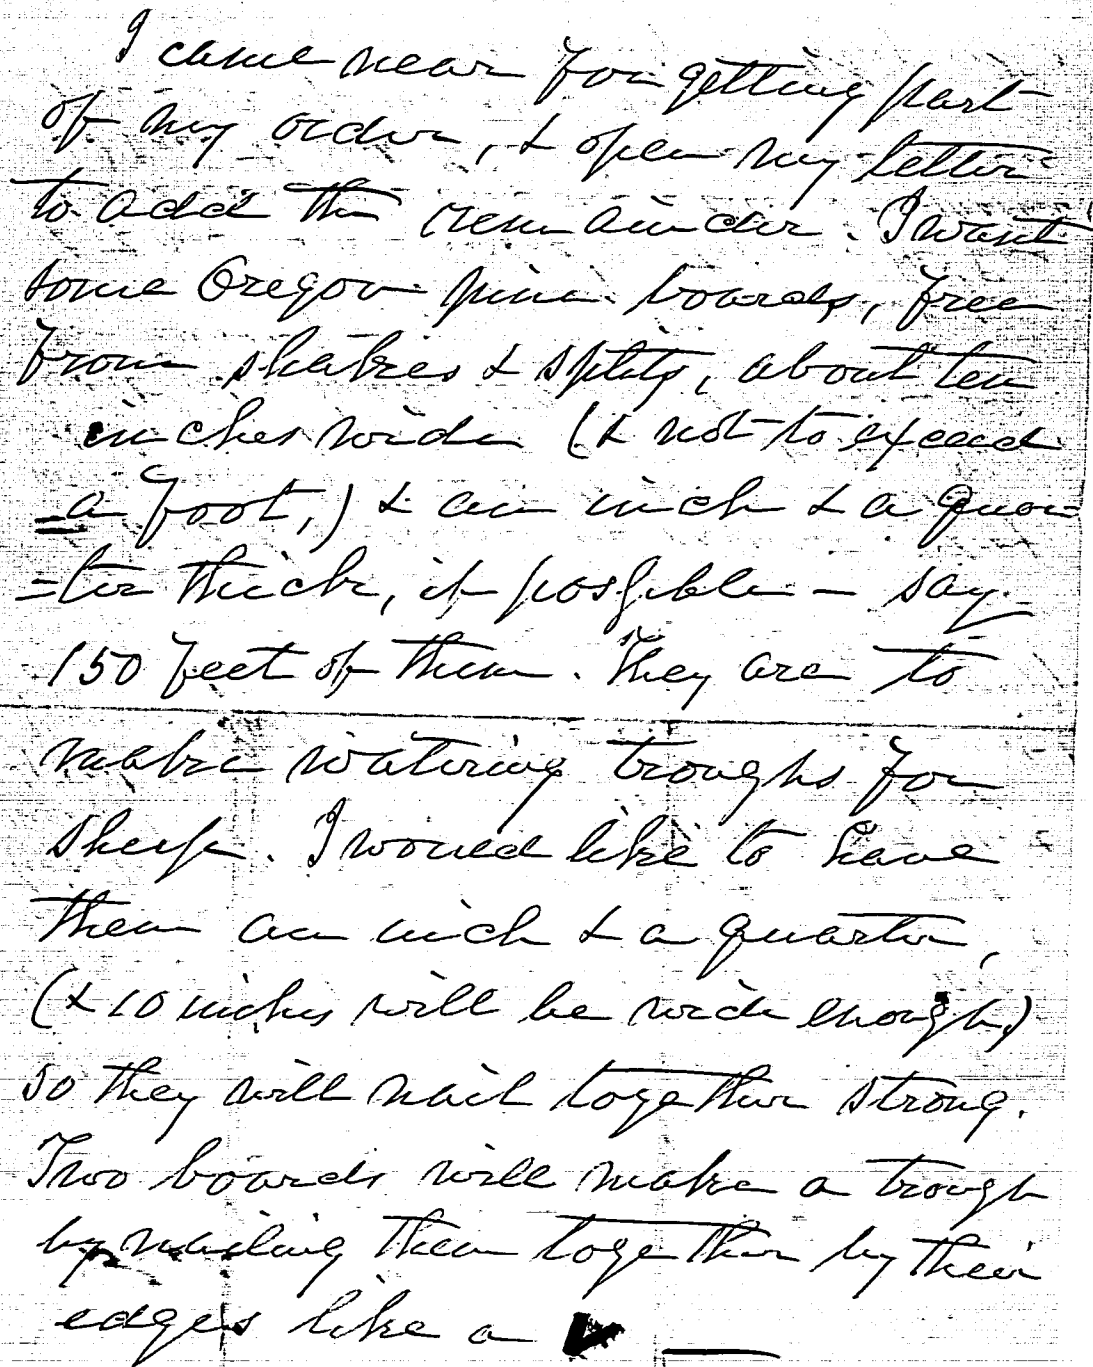 I came near forgetting part
of my order, & open my letter
to add the remainder. I want
some Oregon pine boards, free
from shakes & splits, about ten
inches wide (& not to exceed
=a foot,) & an inch & a quar
=ter thick, if possible - say
150 feet of them. They are to
make watering troughs for
sheep. I would like to have
them an inch & a quarter,
(& 10 inches will be wide enough)
so they will nail together strong.
Two boards will make a trough
by nailing them together by their
edges like a V